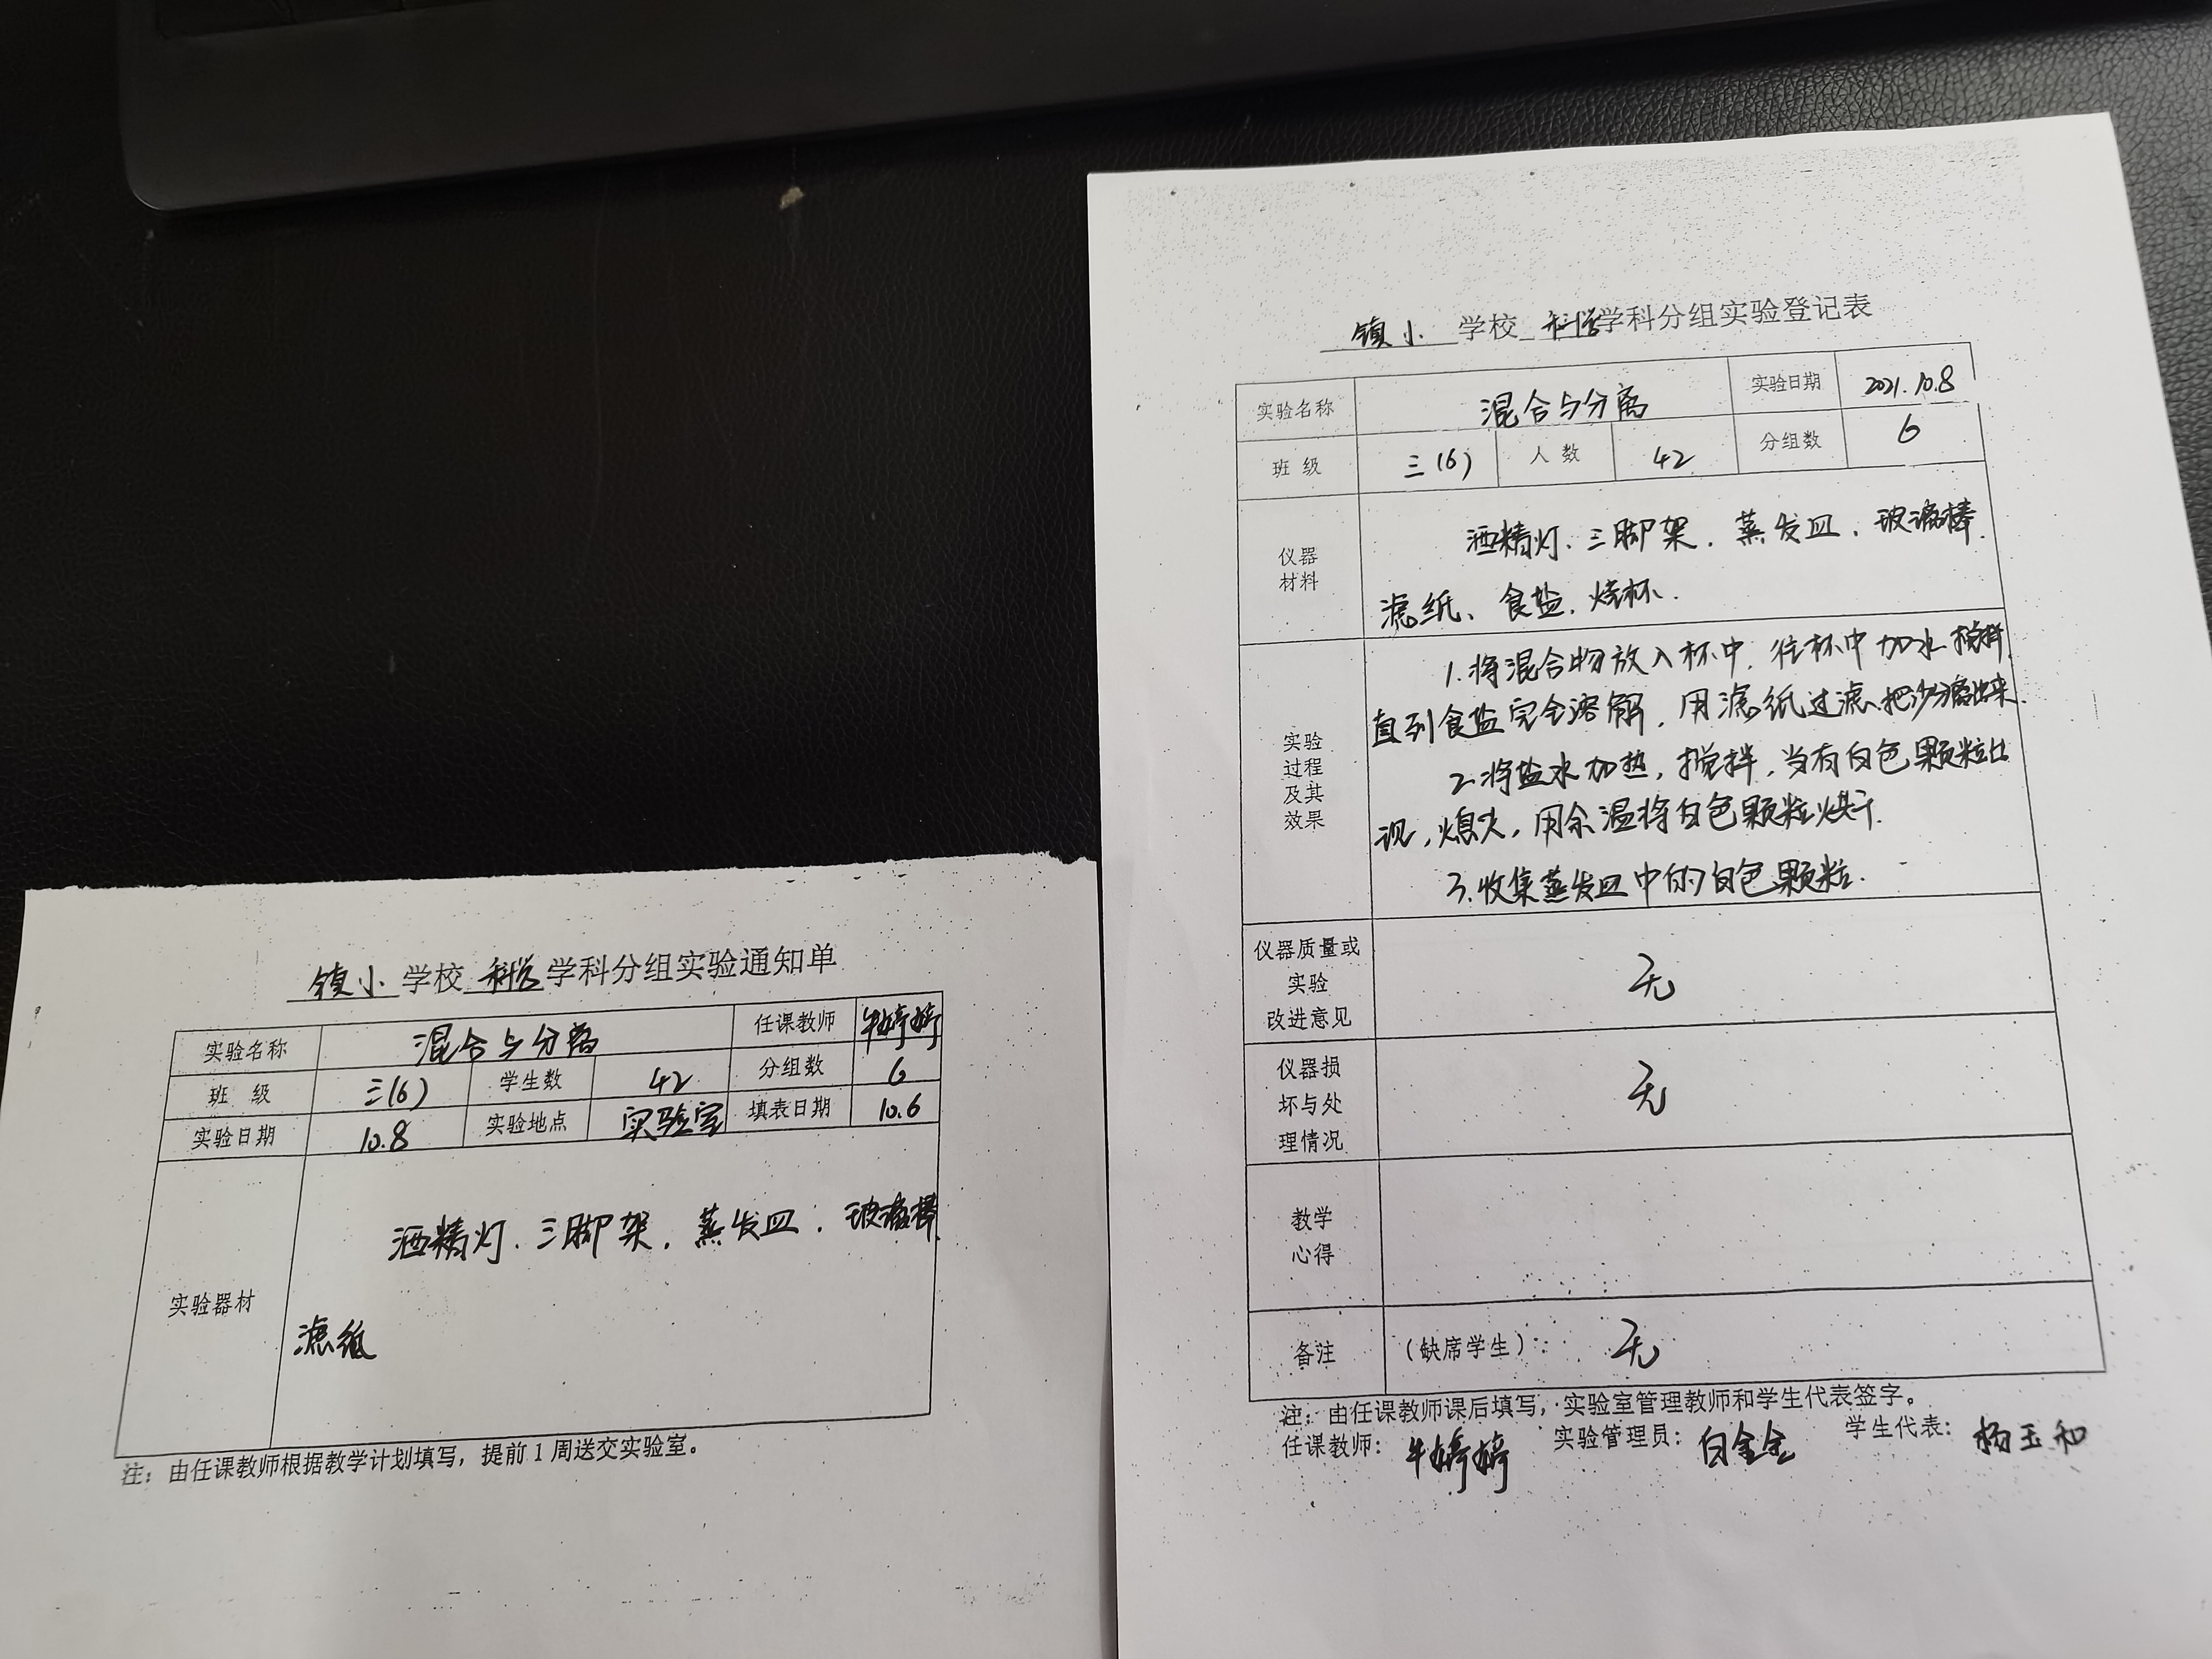 镇小 学校 科学 学科分组实验通知单
实验名称 混合与分离 任课教师 牛婷婷
班 级 三(6) 学生数 42 分组数 6
实验日期 10.8 实验地点 实验室 填表日期 10.6
实验器材
酒精灯、三脚架、蒸发皿、玻璃棒
滤纸
注：由任课教师根据教学计划填写，提前1周送交实验室。
镇小 学校 科学 学科分组实验登记表
实验名称 混合与分离 实验日期 2021.10.8
班 级 三(6) 人 数 42 分组数 6
仪器
材料
酒精灯、三脚架、蒸发皿、玻璃棒、
滤纸、食盐、烧杯.
实验
过程
及其
效果
1.将混合物放入杯中，往杯中加水搅拌，
直到食盐完全溶解，用滤纸过滤、把沙分离出来.
2.将盐水加热，搅拌，当有白色颗粒出
现，熄火，用余温将白色颗粒烘干.
3.收集蒸发皿中的白色颗粒.
仪器质量或
实验
改进意见
无
仪器损
坏与处
理情况
无
教学
心得
备注 （缺席学生）： 无
注：由任课教师课后填写，实验室管理教师和学生代表签字。
任课教师： 牛婷婷 实验管理员： 白金金 学生代表： 杨玉和